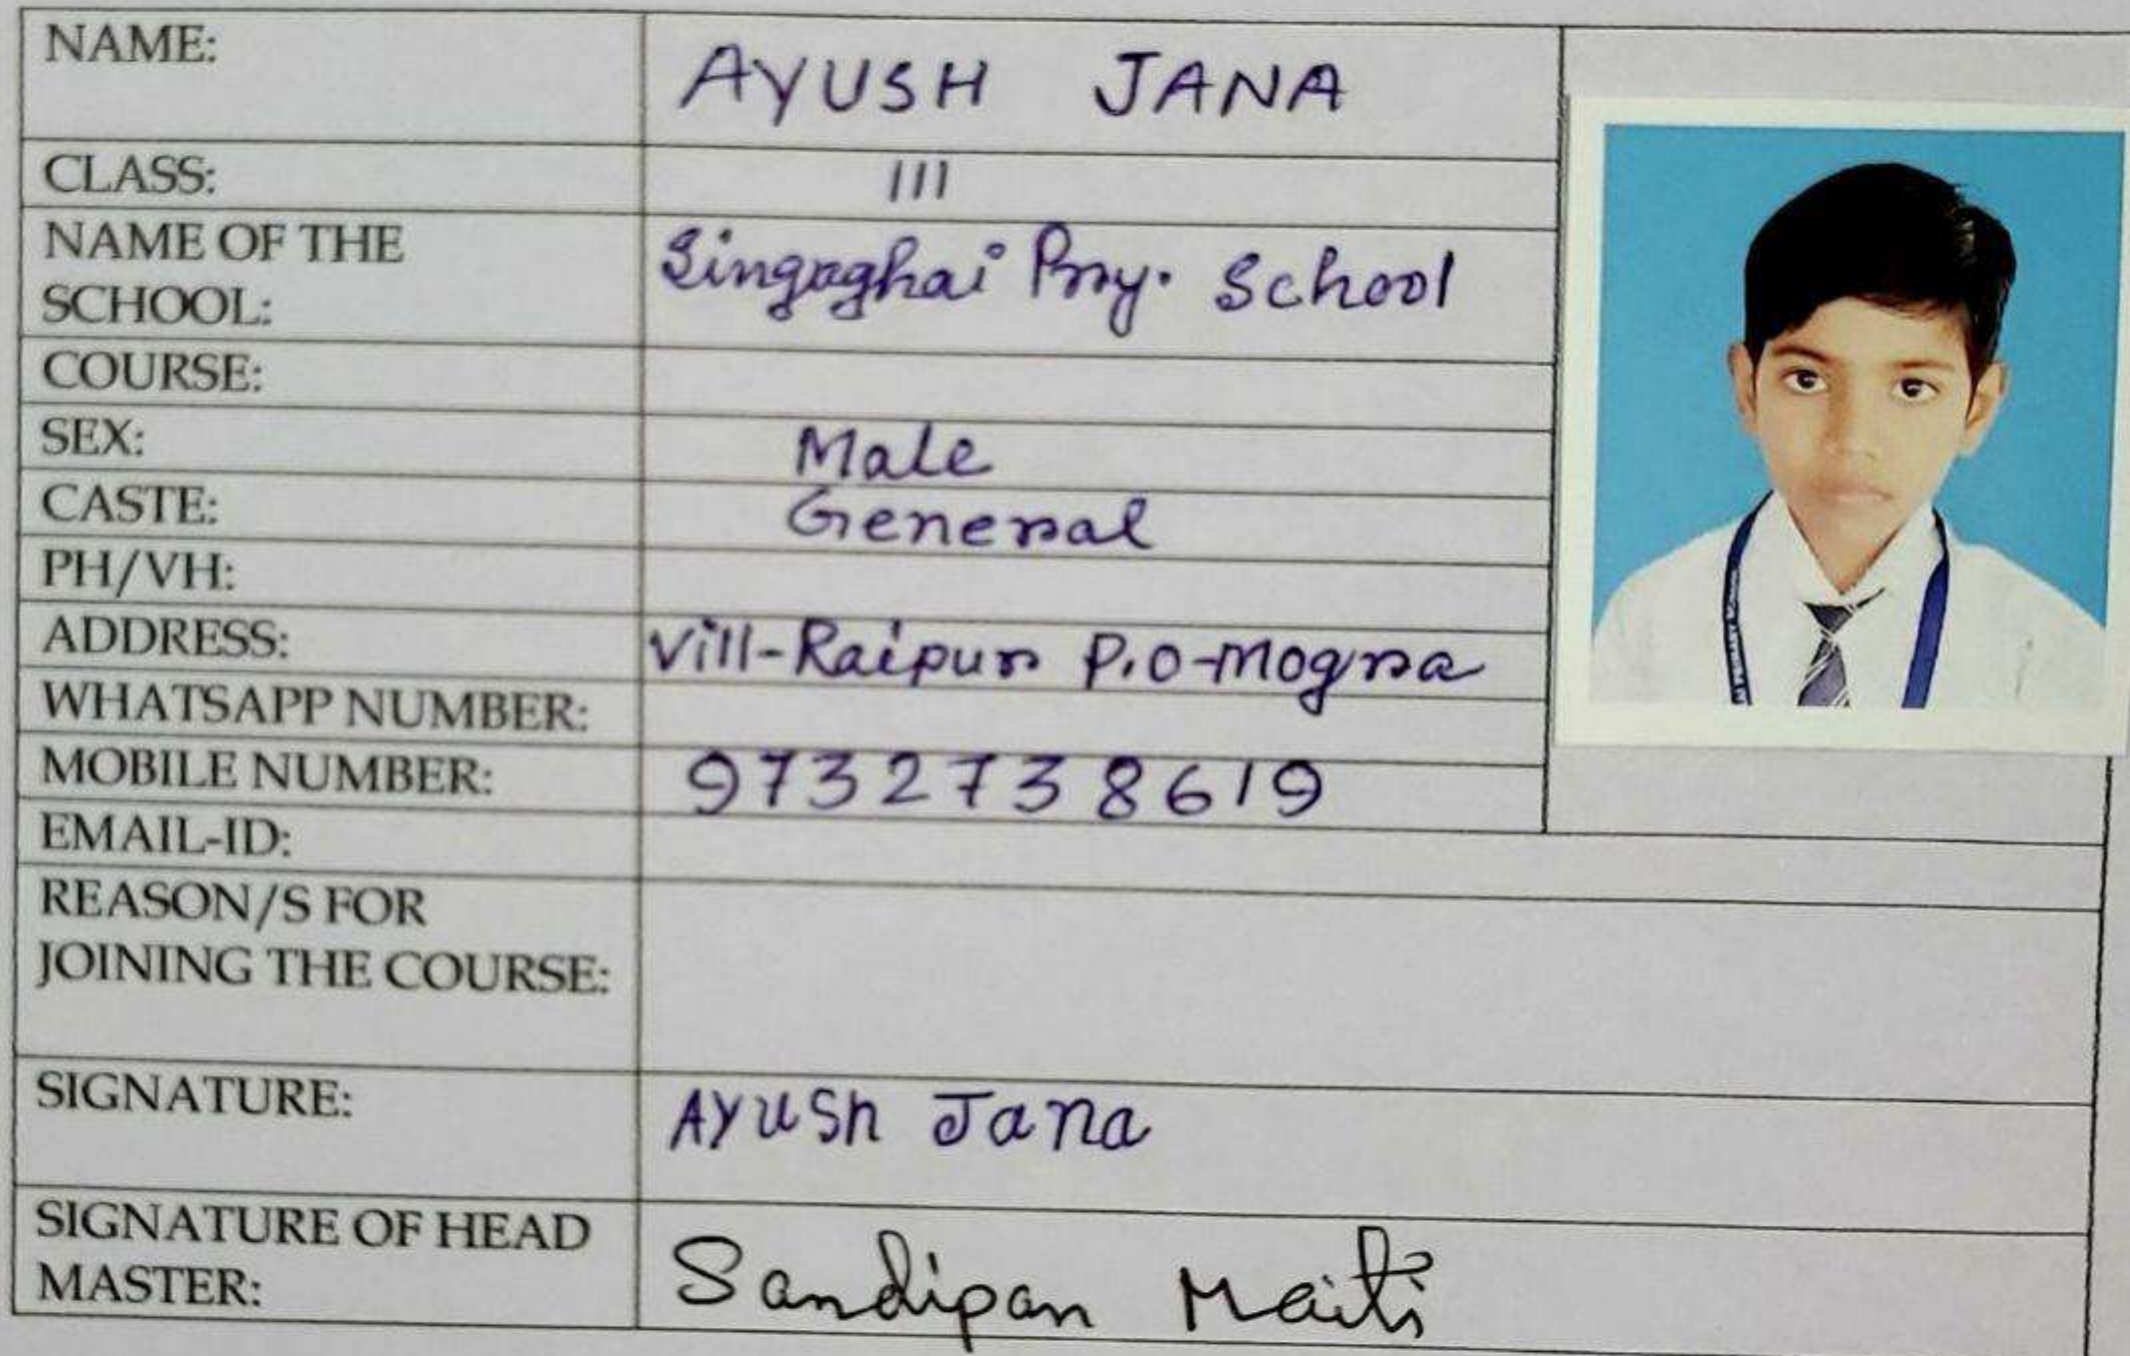 NAME: AYUSH JANA
CLASS: III
NAME OF THE
SCHOOL: Singaghai Pry. School
COURSE:
SEX: Male
CASTE: General
PH/VH:
ADDRESS: Vill-Raipur P.O-Mogra
WHATSAPP NUMBER:
MOBILE NUMBER: 9732738619
EMAIL-ID:
REASON/S FOR
JOINING THE COURSE:
SIGNATURE: AYUSh Jana
SIGNATURE OF HEAD
MASTER: Sandipan Maiti